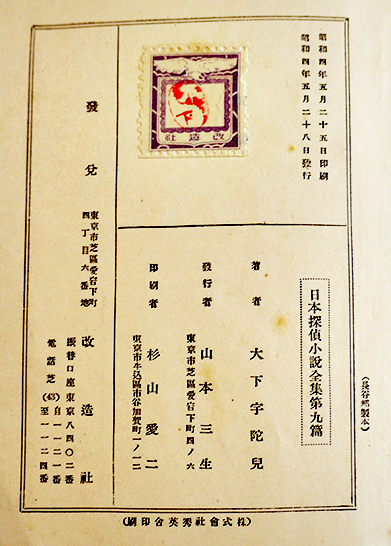 昭和四年五月二十五日印刷
昭和四年五月二十八日發行
改造社
日本探偵小說全集第九篇
著者 大下宇陀兒
東京市芝區愛宕下町四ノ六
發行者 山本三生
東京市牛込區市谷加賀町一ノ一二
印刷者 杉山愛二
發兌
東京市芝區愛宕下町
四丁目六番地
改造社
振替口座東京八四〇二番
電話芝(43)自一一二一番
至一一二四番
(長谷鄉製本)
(株式會社秀英舍印刷)